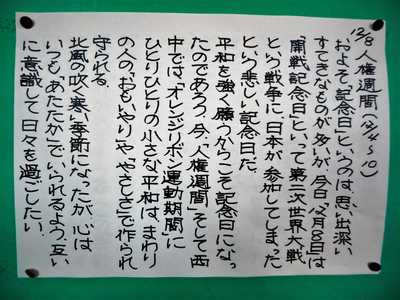 12/8 人権週間(12/4〜10)
およそ「記念日」というのは、思い出深い
すてきなものが多いが、今日「12月8日」は
「開戦記念日」といって第二次世界大戦
という戦争に日本が参加してしまった
という悲しい記念日だ。
平和を強く願うからこそ記念日になっ
たのであろう。今、「人権週間」そして西
中では、「オレンジリボン運動期間」に
ひとりひとりの小さな平和は、まわり
の人の「おもいやり」や「やさしさ」で作られ
守られる。
北風の吹く寒い季節になったが、心は
いつも「あたたか」でいられるよう、互い
に意識して日々を過ごしたい。